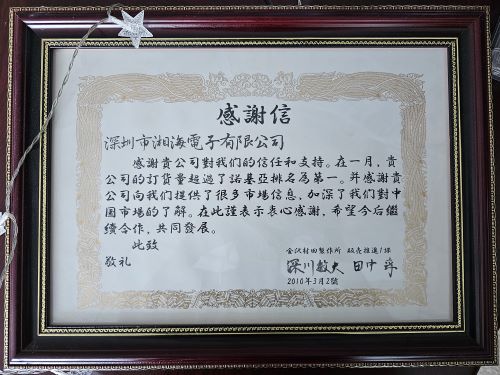 感謝信
深圳市湘海電子有限公司
感謝貴公司對我們的信任和支持。在一月，貴
公司的訂貨量超過了諾基亞排名為第一。并感謝貴
公司向我們提供了很多市場信息，加深了我們對中
國市場的了解。在此謹表示衷心感謝，希望今后繼
續合作，共同發展。
此致
敬礼
金沢村田製作所 販売推進1課
深川敏夫 田中
2010年3月2號